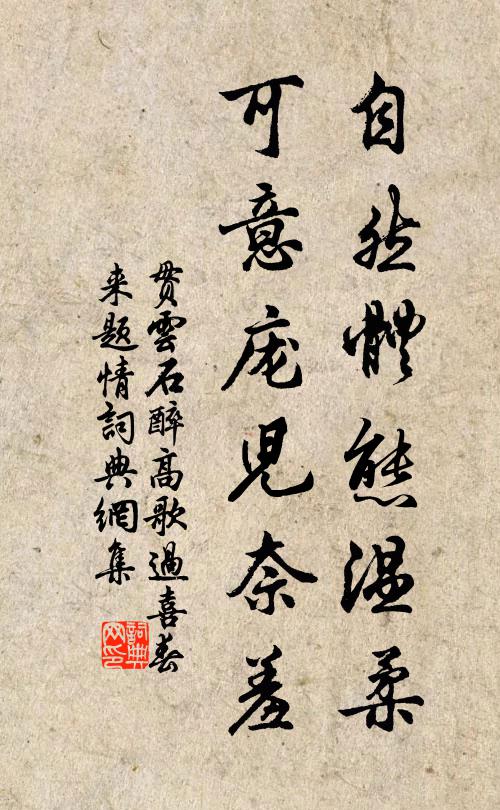 自然體態温柔
可意庞兒奈羞
贯雲石醉高歌過喜春
来题情詞典網集
詞典网印